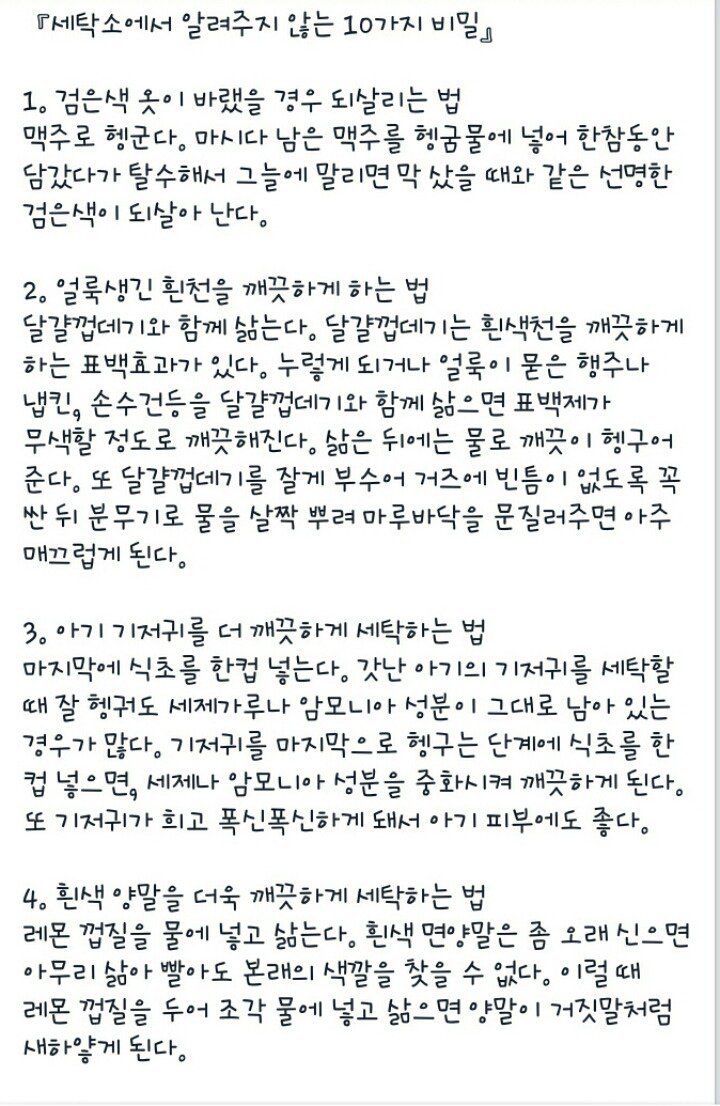 『세탁소에서 알려주지 않는 10가지 비밀』
1. 검은색 옷이 바랬을 경우 되살리는 법
맥주로 헹군다. 마시다 남은 맥주를 헹굼물에 넣어 한참동안
담갔다가 탈수해서 그늘에 말리면 막 샀을 때와 같은 선명한
검은색이 되살아 난다.
2. 얼룩생긴 흰천을 깨끗하게 하는 법
달걀껍데기와 함께 삶는다. 달걀껍데기는 흰색천을 깨끗하게
하는 표백효과가 있다. 누렇게 되거나 얼룩이 묻은 행주나
냅킨, 손수건등을 달걀껍데기와 함께 삶으면 표백제가
무색할 정도로 깨끗해진다. 삶은 뒤에는 물로 깨끗이 헹구어
준다. 또 달걀껍데기를 잘게 부수어 거즈에 빈틈이 없도록 꼭
싼 뒤 분무기로 물을 살짝 뿌려 마루바닥을 문질러주면 아주
매끄럽게 된다.
3. 아기 기저귀를 더 깨끗하게 세탁하는 법
마지막에 식초를 한컵 넣는다. 갓난 아기의 기저귀를 세탁할
때 잘 헹궈도 세제가루나 암모니아 성분이 그대로 남아 있는
경우가 많다. 기저귀를 마지막으로 헹구는 단계에 식초를 한
컵 넣으면, 세제나 암모니아 성분을 중화시켜 깨끗하게 된다.
또 기저귀가 희고 폭신폭신하게 돼서 아기 피부에도 좋다.
4. 흰색 양말을 더욱 깨끗하게 세탁하는 법
레몬 껍질을 물에 넣고 삶는다. 흰색 면양말은 좀 오래 신으면
아무리 삶아 빨아도 본래의 색깔을 찾을 수 없다. 이럴 때
레몬 껍질을 두어 조각 물에 넣고 삶으면 양말이 거짓말처럼
새하얗게 된다.